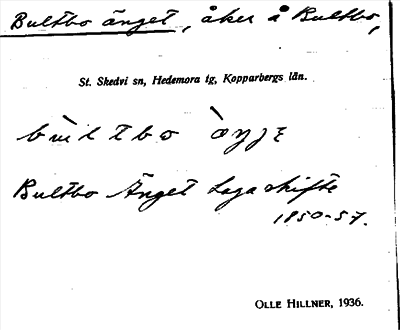 Bultbo änget, åker å Bultbo,
St. Skedvi sn, Hedemora tg, Kopparbergs län.
Bultbo Änget Laga skifte
1850-57.
OLLE HILLNER, 1936.